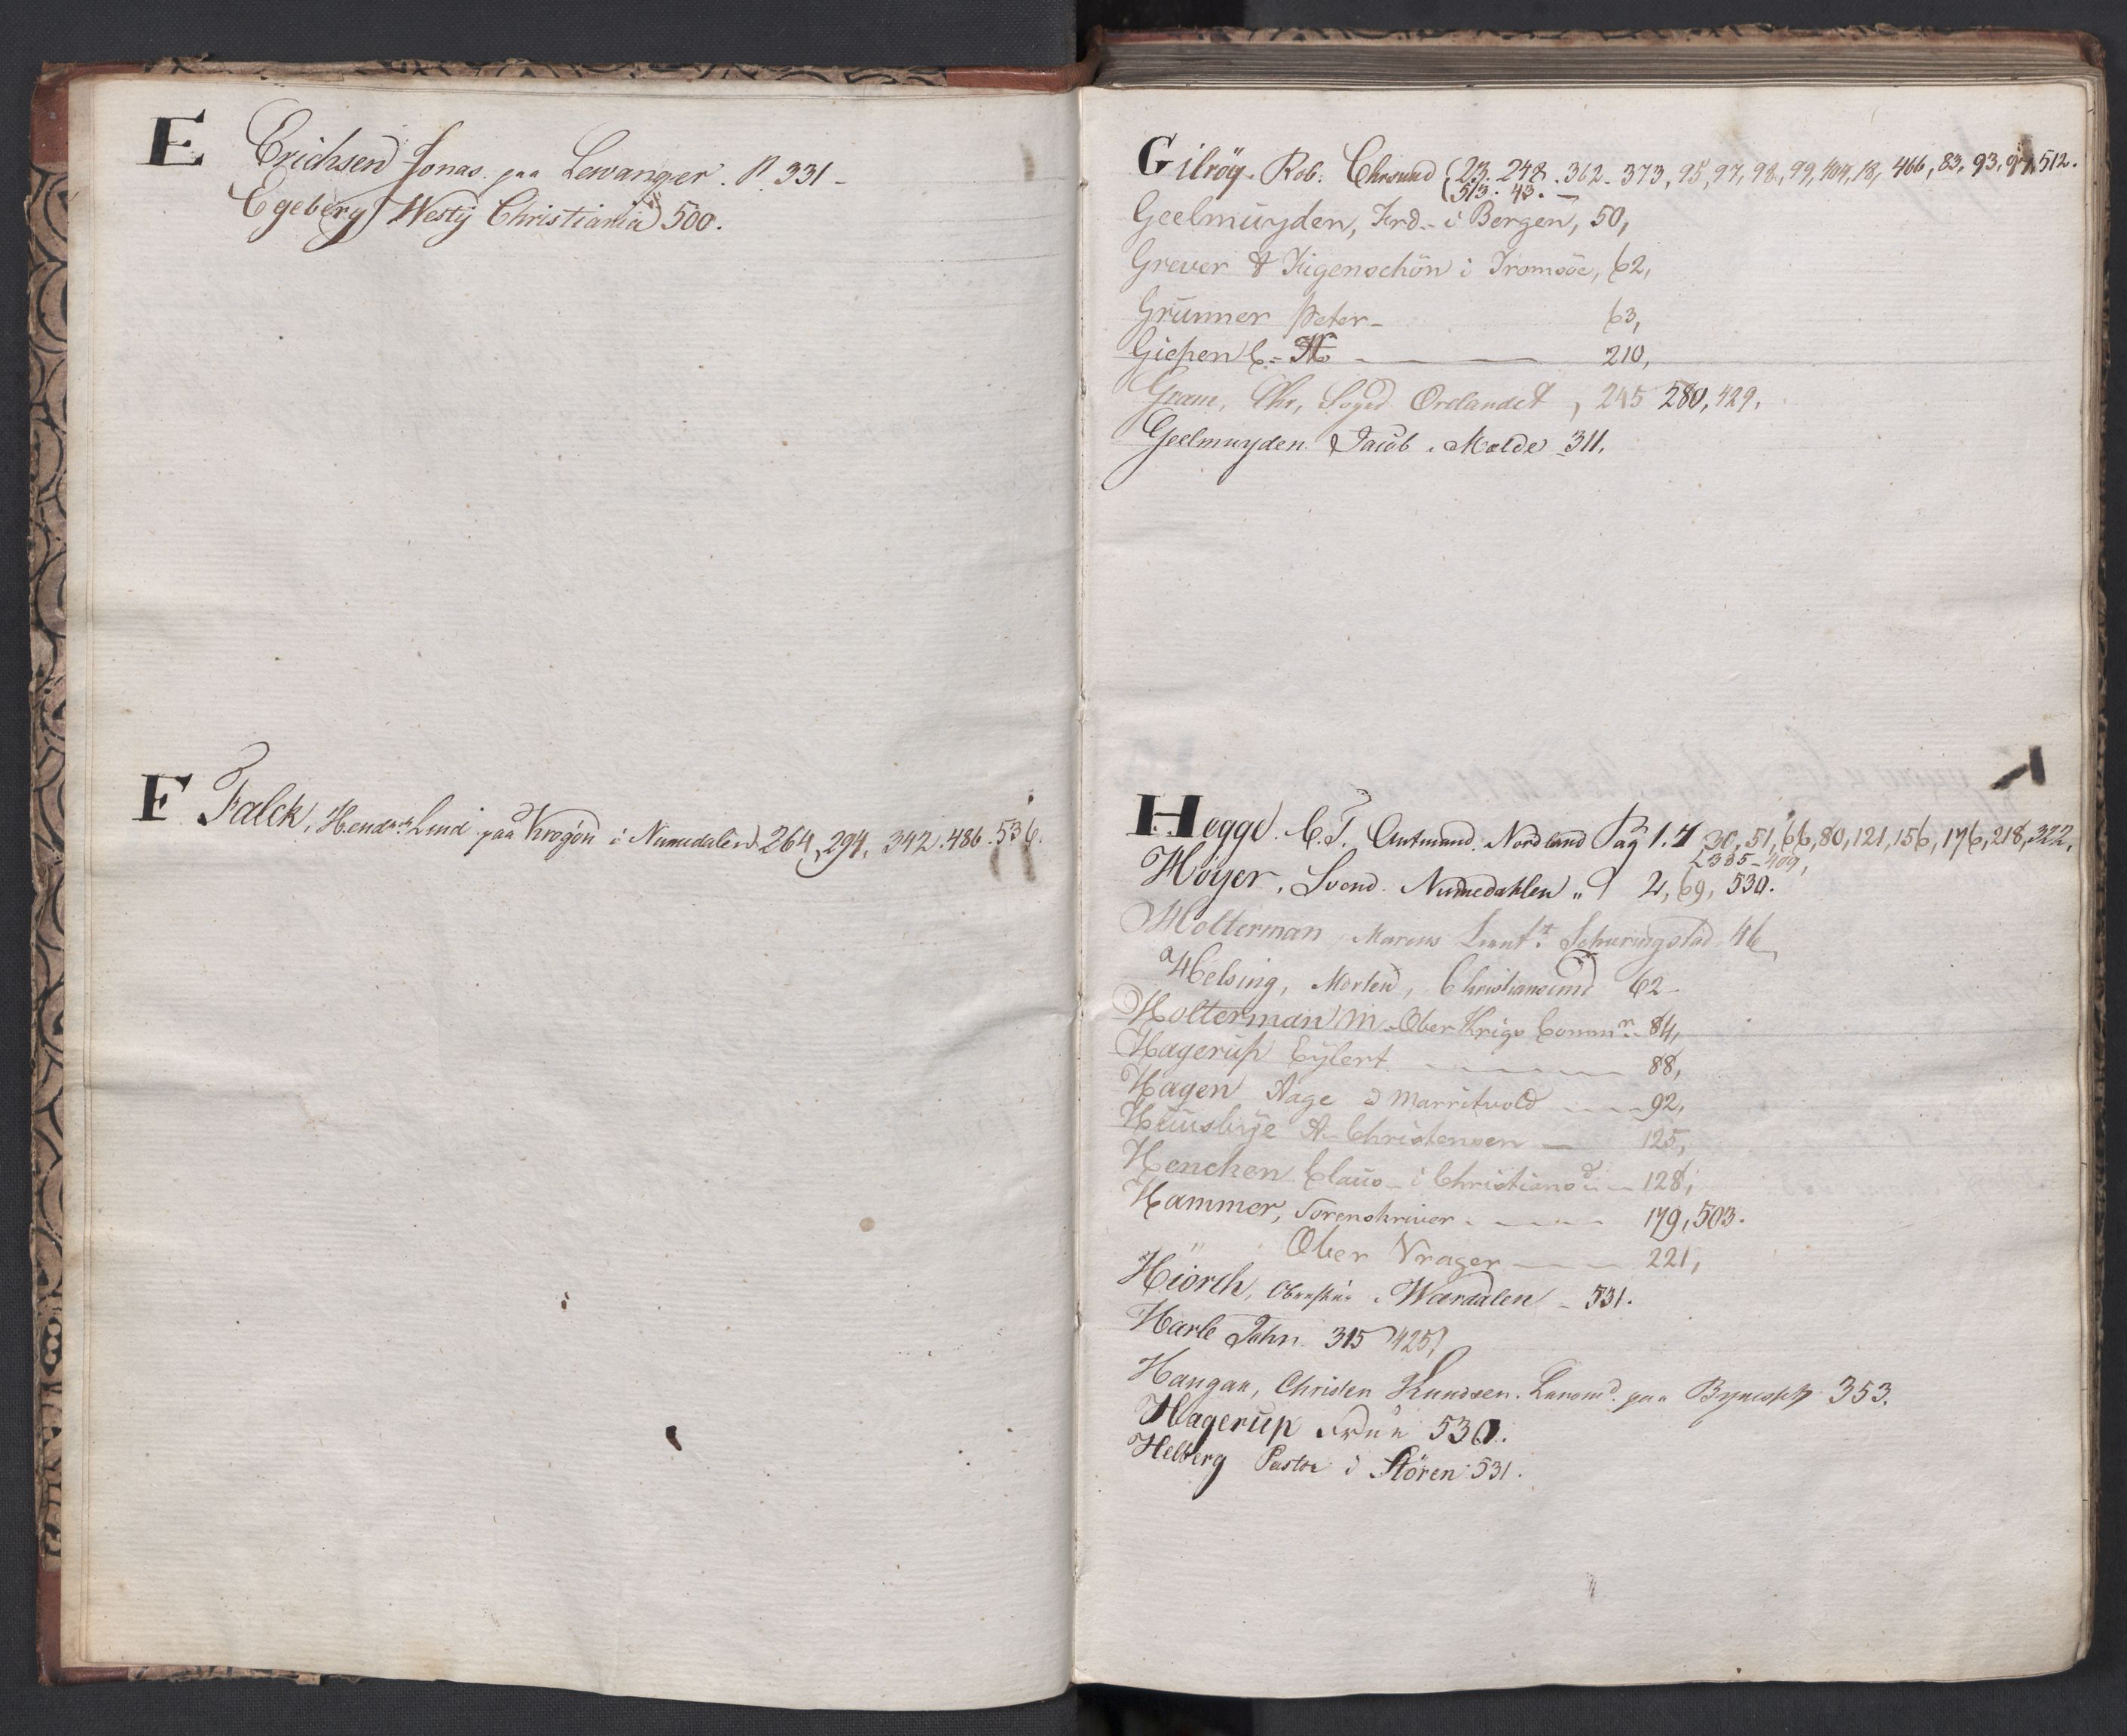 E Erichsen Jonas. paa Lewanger. P. 331 -
Egeberg Westÿ Christiania 500.
F Falck, Hendr: Lind paa Krogøn i Numedalen 264, 294, 342. 486. 536.
Gilröy. Rob: Chrsund 23. 248. 362. 373, 95, 97, 98, 99, 404, 18, 466, 83, 93, 97, 512.
513. 43. -
Geelmuyden, Ferd. i Bergen, 50,
Grever & Fügenschön i Tromsöe, 62,
Grunner Peter - 63,
Giessen C. 210,
Gram, Chr, Foged Ørelandet, 245 280, 429,
Geelmuyden. Jacob. Molde 311.
Hegge. C. T. Amtmand. Nordland Pag 1. 7 30, 51, 66, 80, 121, 156, 176, 218, 322,
385 - 409,
Höyer, Svend. Numedahlen „ 2, 69, 530.
Holterman, Marcus Lieut:t Schuringstad 46
Helsing, Morten, Christiansund 62 -
Holterman M. Ober Krigs Comm:r 84,
Hagerup Eÿlert 88,
Hagen Aage à Marritvold 92,
Huusbye A. Christensen 125,
Hencken Claus - i Christians:d 128,
Hammer, Sorenskriver 179, 503.
" Ober Vrager 221,
Hiorth, Wærdalen - 531.
Harle John. 315 425,
Haugan, Christen Knudsen. Lensmd. paa 353.
Hagerup Frue 530.
Helberg Pastor i Stören 531.